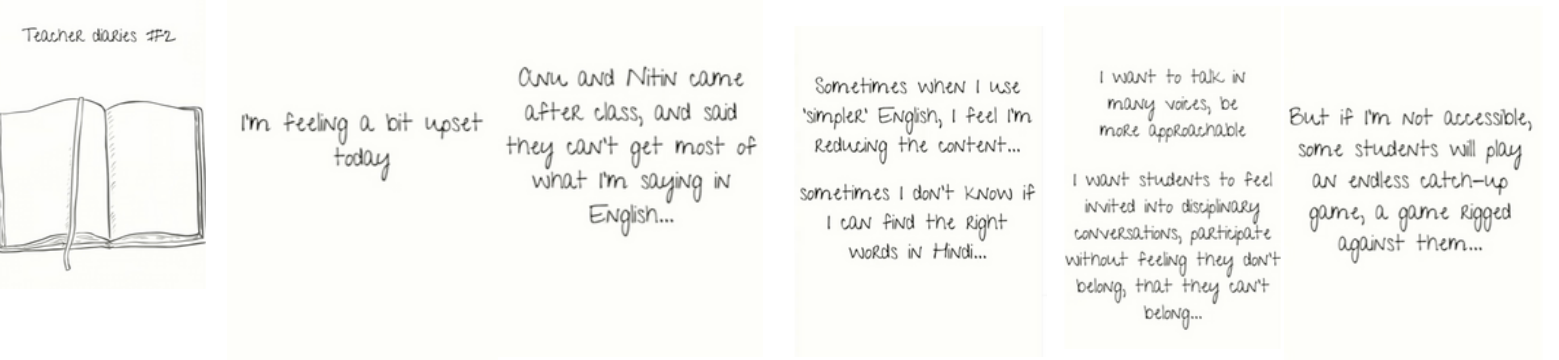 Teacher diaries #2
I'm feeling a bit upset
today
Anu and Nitin came
after class, and said
they can't get most of
what I'm saying in
English...
Sometimes when I use
'simpler' English, I feel I'm
reducing the content...
sometimes I don't know if
I can find the right
words in Hindi...
I want to talk in
many voices, be
more approachable
I want students to feel
invited into disciplinary
conversations, participate
without feeling they don't
belong, that they can't
belong...
But if I'm not accessible,
some students will play
an endless catch-up
game, a game rigged
against them...